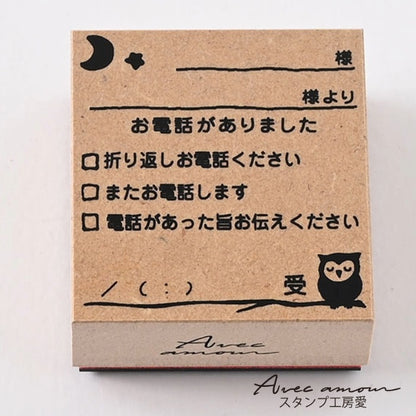 様
様より
お電話がありました
折り返しお電話ください
またお電話します
電話があった旨お伝えください
/ ( : ) 受
Avec amour
Avec amour
スタンプ工房愛